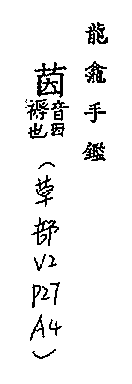 龍龕手鑑
茵音因
褥也
(草部
V2
P27
A4)